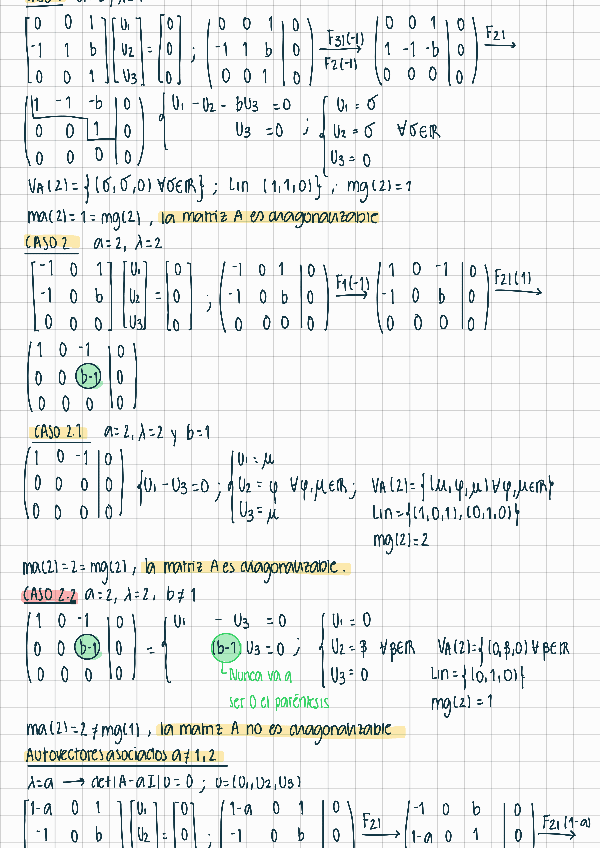 [0 0 1; -1 1 b; 0 0 1] [U1; U2; U3] = [0; 0; 0] ; (0 0 1 | 0; -1 1 b | 0; 0 0 1 | 0) F31(-1) F2(-1) → (0 0 1 | 0; 1 -1 -b | 0; 0 0 0 | 0) F21 →
(1 -1 -b | 0; 0 0 1 | 0; 0 0 0 | 0) { U1 - U2 - bU3 = 0; U3 = 0 ; { U1 = σ; U2 = σ ∀σ∈ℝ; U3 = 0
VA(2) = {(σ, σ, 0) ∀σ∈ℝ} ; Lin {(1,1,0)} , mg(2) = 1
ma(2) = 1 = mg(2) , la matriz A es diagonalizable
CASO 2 a=2, λ=2
[-1 0 1; -1 0 b; 0 0 0] [U1; U2; U3] = [0; 0; 0] ; (-1 0 1 | 0; -1 0 b | 0; 0 0 0 | 0) F1(-1) → (1 0 -1 | 0; -1 0 b | 0; 0 0 0 | 0) F21(1) →
(1 0 -1 | 0; 0 0 b-1 | 0; 0 0 0 | 0)
CASO 2.1 a=2, λ=2 y b=1
(1 0 -1 | 0; 0 0 0 | 0; 0 0 0 | 0) {U1 - U3 = 0 ; { U1 = μ; U2 = φ ∀φ,μ∈ℝ; U3 = μ ; VA(2) = {(μ, φ, μ) ∀φ,μ∈ℝ}
Lin = {(1,0,1), (0,1,0)}
mg(2) = 2
ma(2) = 2 = mg(2) , la matriz A es diagonalizable.
CASO 2.2 a=2, λ=2, b≠1
(1 0 -1 | 0; 0 0 b-1 | 0; 0 0 0 | 0) = { U1 - U3 = 0; (b-1) U3 = 0 ; { U1 = 0; U2 = β ∀β∈ℝ; U3 = 0 VA(2) = {(0, β, 0) ∀β∈ℝ
Lin = {(0,1,0)}
mg(2) = 1
Nunca va a
ser 0 el paréntesis
ma(2) = 2 ≠ mg(1) , la matriz A no es diagonalizable
Autovectores asociados a≠1,2
λ=a → det|A-aI|U = 0 ; U=(U1,U2,U3)
[1-a 0 1; -1 0 b] [U1; U2] = [0; 0] ; (1-a 0 1 | 0; -1 0 b | 0) F21 → (-1 0 b | 0; 1-a 0 1 | 0) F21(1-a) →